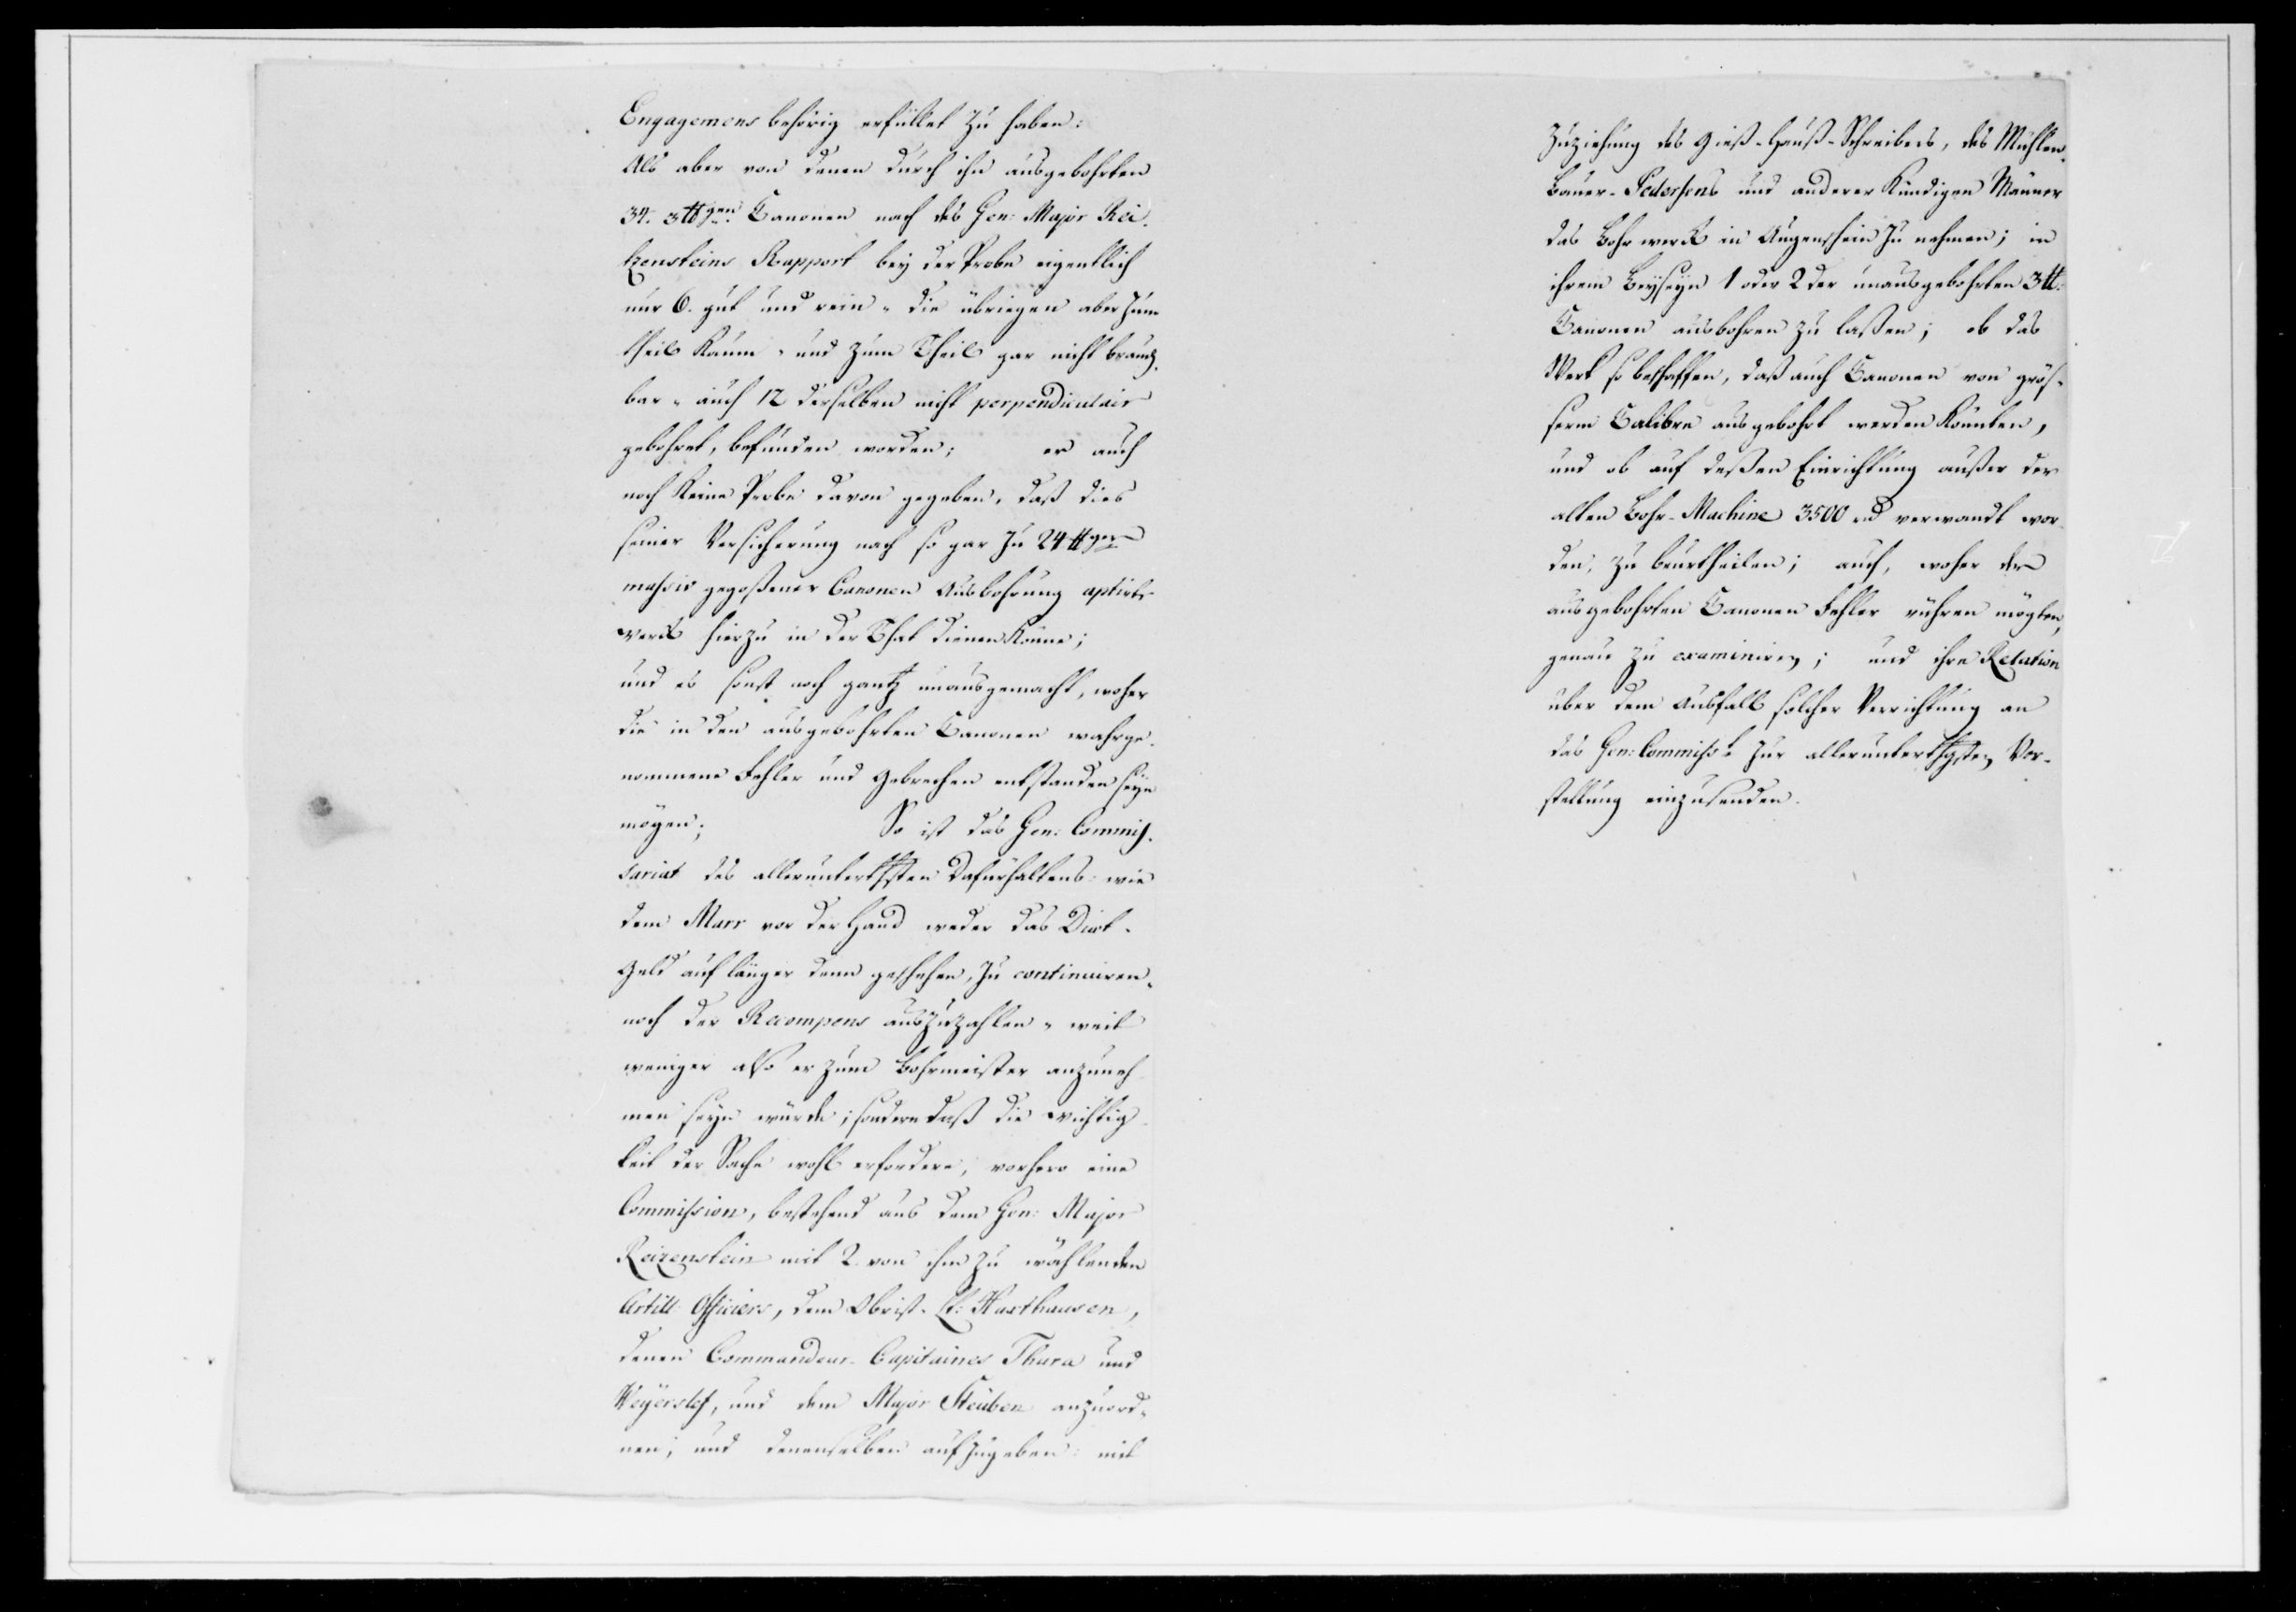 Engagemens behörig erfüllet zu haben:
Als aber von denen durch ihn ausgebohrten
34. 3 ℔gen Canonen nach des Gen: Major Rei-
tzensteins Rapport bey der Probe eigentlich
nur 6. gut und rein, die übriegen aber zum
theils kaum, und zum Theils gar nicht brauch-
bar, auch 12 derselben nicht perpendiculair
gebohret, befunden worden; er auch
noch keine Probe davon gegeben, daß dies
seiner Versicherung nach so gar zu 24 ℔ger
massiv gegoßener Canonen Ausbohrung aptirte
werck hierzu in der That dienen könne;
und es sonst noch gantz unausgemacht, woher
die in den ausgebohrten Canonen wahrge-
nommene Fehler und Gebrechen entstanden seyn
mögen; So ist das Gen: Commis-
sariat des alleruntertgsten Dafürhaltens: wie
dem Marr vor der Hand weder das Diæt-
Geld auf länger denn geschehen, zu continuiren,
noch der Recompens auszuzahlen, weit
weniger also er zum Bohrmeister anzuneh-
men seyn würde; sondern daß die Wichtig-
keit der Sache wohl erfordere, vorhero eine
Commission, bestehend aus dem Gen: Major
Reizenstein mit 2. von ihm zu wählenden
Artill: Officiers, dem Obrist-Lt: Harthausen,
denen Commandeur-Capitaines Thura und
Weyersløf, und dem Major Steuben anzuord-
nen; und denenselben aufzugeben: mit
Zuziehung des Gieß-Hauß-Schreibers, des Mühlen-
Bauer-Pedersens und anderer kündigen Männer
das Bohrwerck in Augenschein zu nehmen; in
ihrem Beyseyn 1 oder 2 der unausgebohrten 3 ℔:
Canonen ausbohren zu laßen; ob das
Werk so beschaffen, daß auch Canonen von grös-
serm Calibre ausgebohrt werden könnten,
und ob auf deßen Einrichtung außer der
alten Bohr-Machine 3500 rd verwandt wor-
den, zu beurtheilen; auch, woher der
ausgebohrten Canonen Fehler rühren mögten,
genau zu examiniren; und ihre Relation
über dem Ausfall solcher Verrichtung an
das Gen: Commiss:t zur alleruntertgsten Vor-
stellung einzusenden.